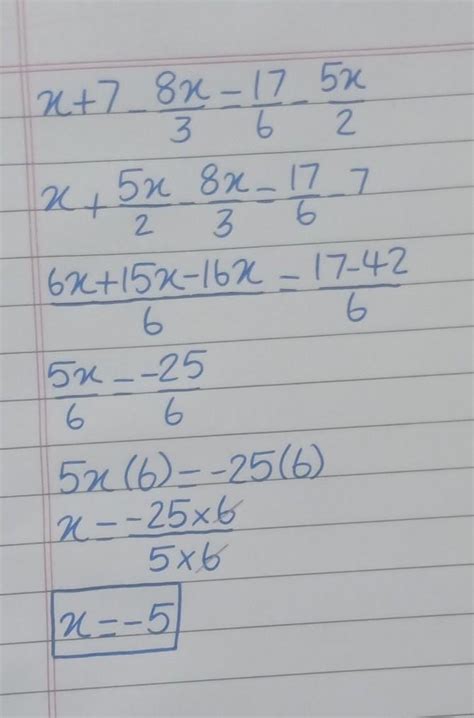 x+7-8x/3=17/6-5x/2
x+5x/2-8x/3=17/6-7
6x+15x-16x/6=17-42/6
5x/6=-25/6
5x(6)=-25(6)
x=-25×6/5×6
x=-5